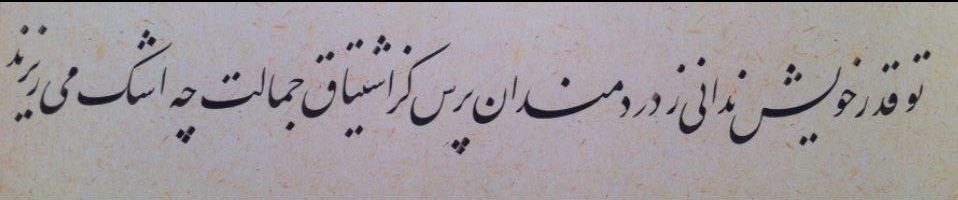 تو قدر خویش ندانی ز دردمندان پرس کز اشتیاق جمالت چه اشک می ریزند